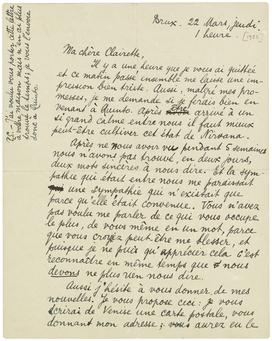 Brux. 22 Mars, jeudi.
1 heure.
Ma chère Clairette,
Il y a une heure que je vous ai quittée
et ce matin passé ensemble me laisse une im-
pression bien triste. Aussi, malgré mes pro-
messes, je me demande si je ferais bien en
venant à Quinto. Après être arrivé à un
si grand calme entre nous il faut mieux
peut-être cultiver cet état de Nirvana.
Après ne nous avoir vu pendant 5 semaines
nous n'avons pas trouvé, en deux jours,
deux mots sincères à nous dire. Et la sym-
pathie qui était entre nous me paraissait
une sympathie qui n'existait que
parce qu'elle était convenue. Vous n'avez
pas voulu me parler de ce qui vous occupe
le plus, de vous même en un mot, parce
que vous croyez peut être me blesser, et
puisque je ne puis qu'apprécier cela c'est
reconnaître en même temps que nous
devons ne plus rien nous dire.
Aussi j'hésite à vous donner de mes
nouvelles. Je vous propose ceci: je vous
écrirai de Venise une carte postale, vous
donnant mon adresse; vous aurez eu le
J'ai voulu vous porter cette lettre
à votre maison mais n'en ai plus
je vous l'envoie
donc à Quinto.